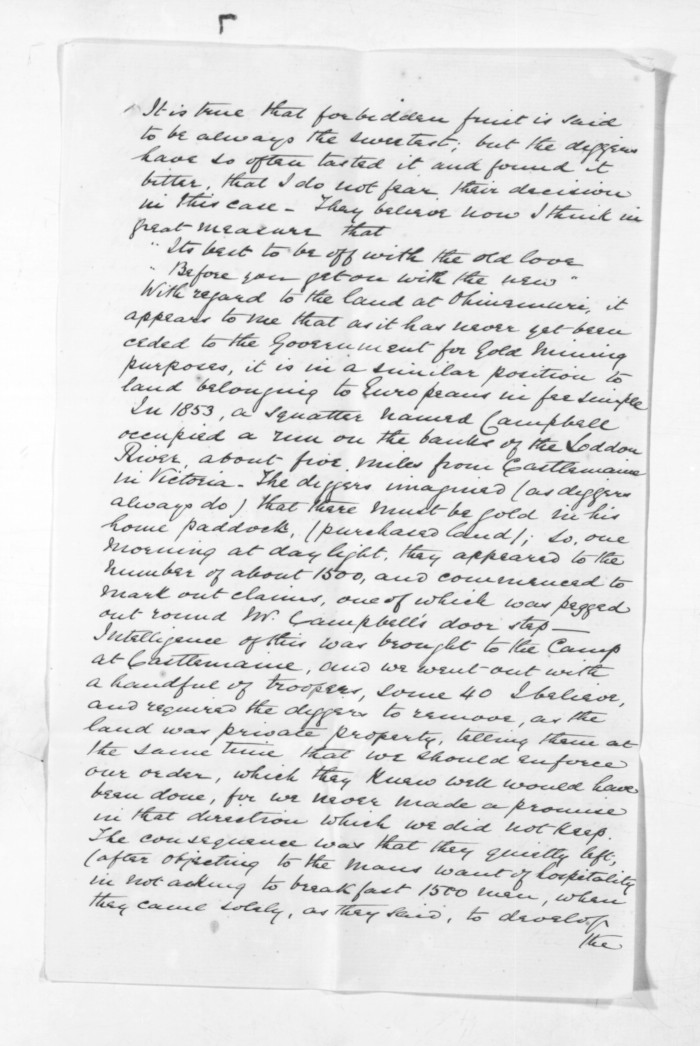 It is true that forbidden fruit is said
to be always the sweetest; but the diggers
have so often tasted it and found it
bitter, that I do not fear their decision
in this case - They believe now I think in
great measure that
"Its best to be off with the old love
"Before you get on with the new"
With regard to the land at Ohinemuri, it
appears to me that as it has never yet been
ceded to the Government for Gold Mining
purposes, it is in a similar position to
land belonging to Europeans in fee simple
In 1853, a squatter named Campbell
occupied a run on the banks of the Loddon
River, about five miles from Castlemaine
in Victoria - The diggers imagined (as diggers
always do) that there must be gold in his
home paddock, (purchased land); so, one
morning at day light, they appeared to the
number of about 1500, and commenced to
mark out claims, one of which was pegged
out round Mr. Campbell's door step -
Intelligence of this was brought to the Camp
at Castlemaine, and we went out with
a handful of troopers, some 40 I believe,
and required the diggers to remove, as the
land was private property, telling them at
the same time that we should enforce
our order, which they knew well would have
been done, for we never made a promise
in that direction which we did not keep.
The consequence was that they quietly left,
(after objecting to the mans want of hospitality
in not asking to breakfast 1500 men, when
they came solely, as they said, to develop
the